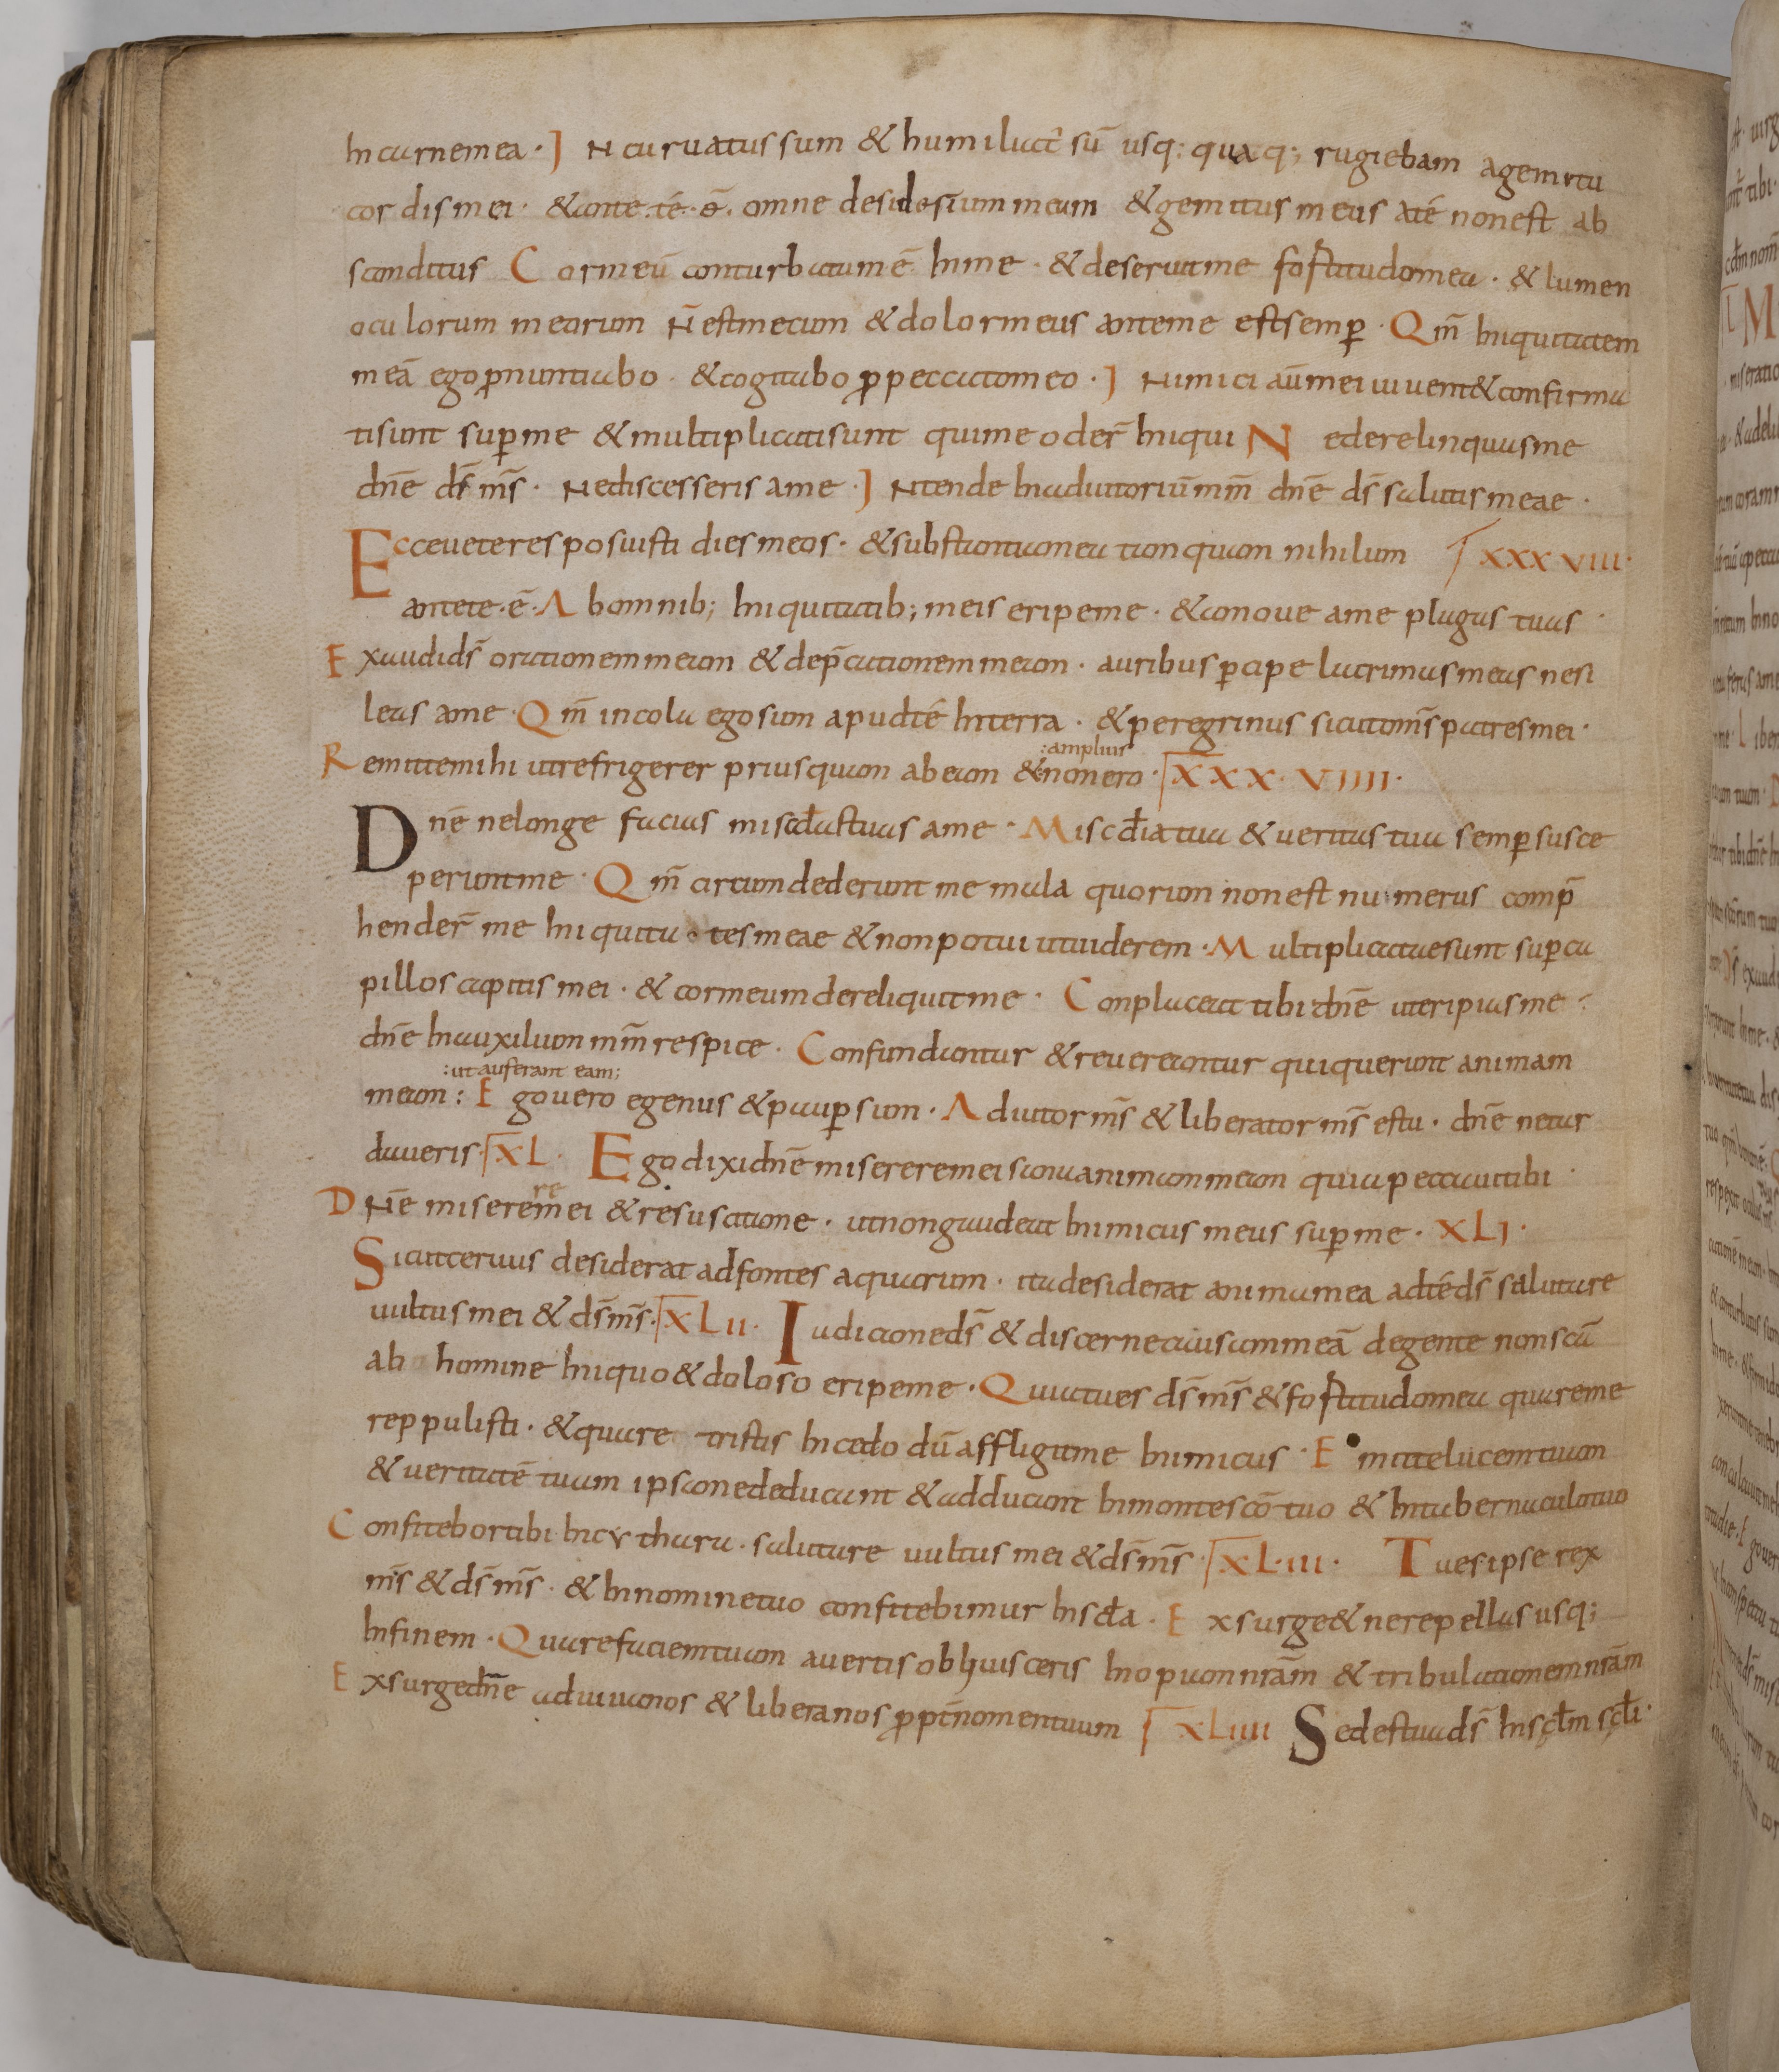 In carne mea · INcuruatus sum & humiliat' sū usq: quaq; rugiebam a gemitu
cordis mei · & ante tē · ē · omne desiderium meum & gemitus meus a tē non est ab
scanditus Cor meū conturbatum ē In me · & deseruit me fortitudo mea · & lumen
oculorum meorum N̄ est mecum & dolor meus ante me est semꝑ · Qm̄ Iniquitatem
meā ego ꝓnuntiabo · & cogitabo ꝓ peccato meo · INimici aū mei uiuent & confirma
ti sunt suꝑ me & multiplicati sunt qui me oder̄ Inique Ne derelinquas me
dnē ds̄ ms̄ · Ne discesseris a me · INtende In adiutoriū mm̄ dnē ds̄ salutis meae ·
Ecce ueteres posuisti dies meos · & substantia mea tanquam nihilum XXXVIII ·
ante te · ē · Ab omnib; Iniquitatib; meis eripe me · & amoue a me plagas tuas ·
Exaudi ds̄ orationem meam & dep̄cationem meam · auribus ꝑcipe lacrimas meas ne si
leas a me · Qm̄ incola ego sum apud tē In terra · & peregrinus sicut om̄s patres mei ·
Remitte mihi ut refrigerer priusquam abeam & :amplius non ero · XXX·VIIII·
Dnē ne longe facias miscđas tuas a me · Miscđia tua & ueritas tua semꝑ susce
perunt me · Qm̄ circumdederunt me mala quorum non est numerus comp̄
hender̄ me Iniquitates meae & non potui ut uiderem · Multiplicatae sunt suꝑ ca
pillos capitis mei · & cor meum dereliquit me · Conplaceat tibi dnē ut eripias me ·
dnē In auxilium mm̄ respice · Confundantur & reuereantur qui querunt animam
meam : :ut auferant eam; Ego uero egenus & pauꝑ sum · Adiutor ms̄ & liberator ms̄ es tu · dnē ne tar
daueris · XL · Ego dixi dnē miserere mei sana animam meam quia peccaui tibi ·
DNē miserere mei & resuscita me · ut non gaudeat Inimicus meus suꝑ me · XLI ·
Sicut ceruus desiderat ad fontes aquarum · ita desiderat anima mea ad tē ds̄ salutare
uultus mei & ds̄ ms̄ · XLII · Iudica me ds̄ & discerne causam meā de gente non scā
ab homine Iniquo & doloso eripe me · Quia tu es ds̄ ms̄ & fortitudo mea quare me
reppulisti · & quare tristis Incedo dū affligit me Inimicus · Emitte lucem tuam
& ueritatē tuam ipsa me deducant & adducant In monte scō tuo & In tabernaculo tuo
Confitebor tibi In cythara · salutare uultus mei & ds̄ ms̄ · XL·III · Tu es ipse rex
ms̄ & ds̄ ms̄ · & In nomine tuo confitebimur In scła · Exsurge & ne repellas usq;
In finem · Quare faciem tuam auertis obliuisceris Inopiam nrām & tribulationem nrām
Exsurge dnē adiuua nos & libera nos ꝓpt̄ nomen tuum XLIIII Sedes tua ds̄ In sclm̄ scli̅ ·